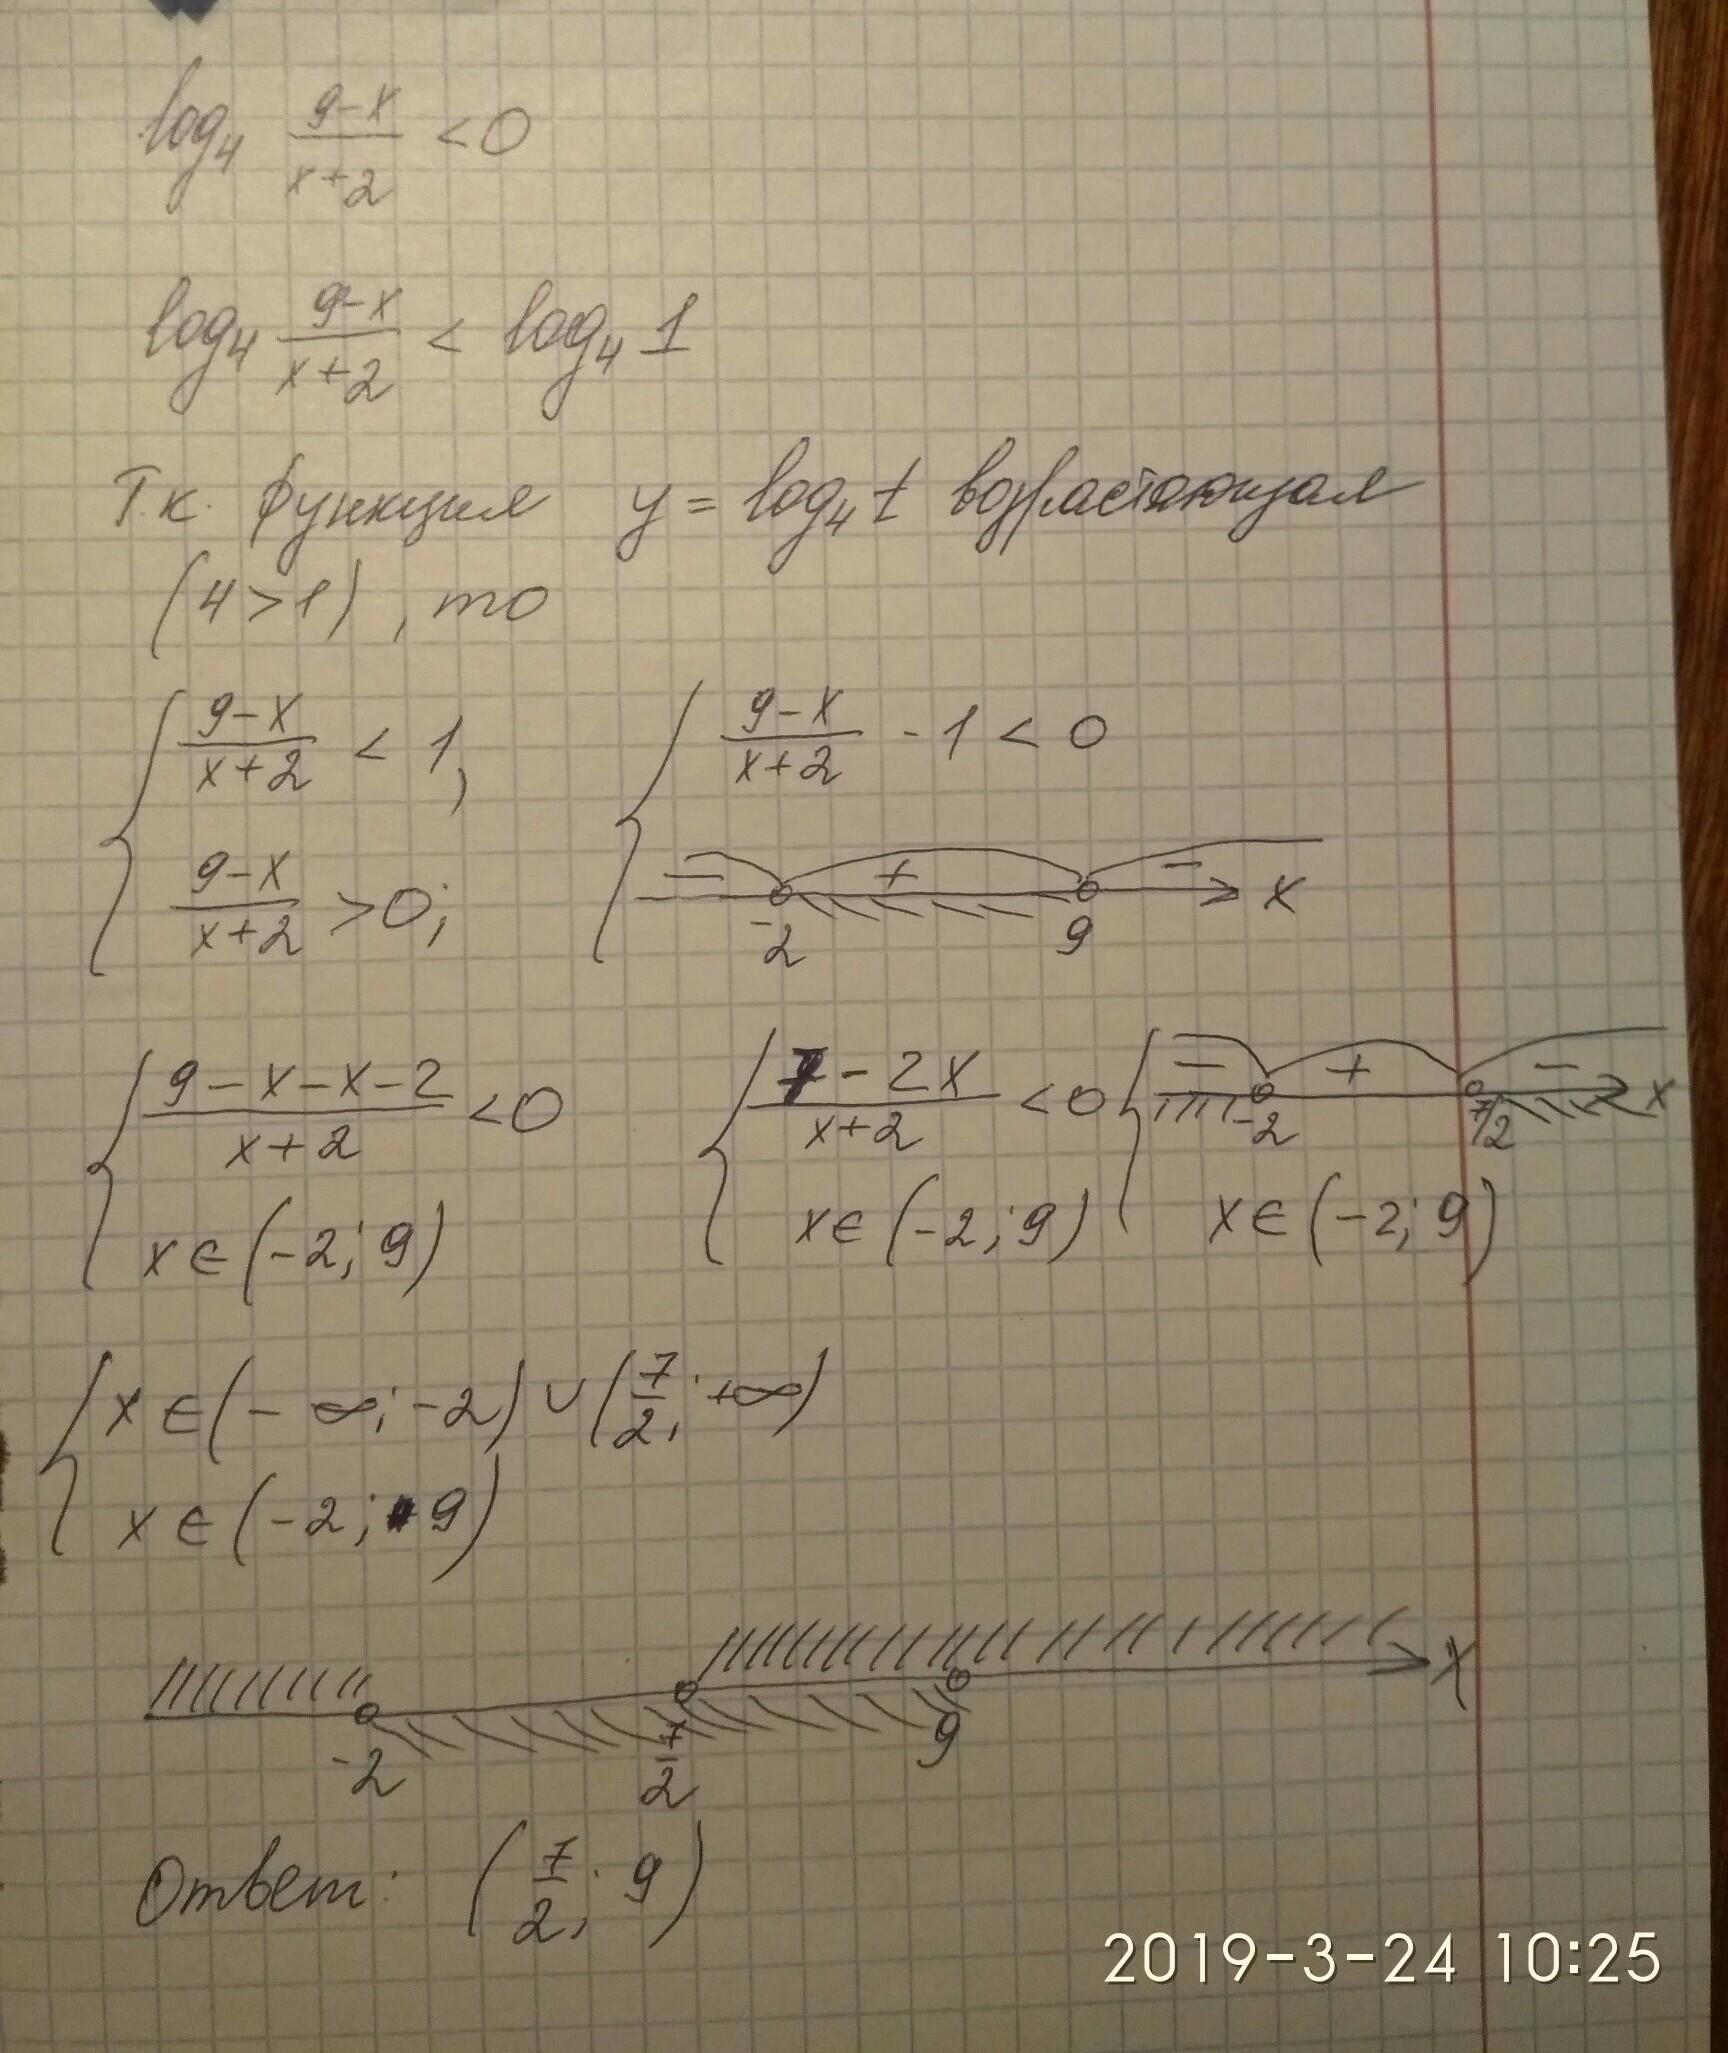 log₄ (9-x)/(x+2) < 0
log₄ (9-x)/(x+2) < log₄ 1
Т.к. функция y = log₄ t возрастающая
(4>1), то
{ (9-x)/(x+2) < 1, { (9-x)/(x+2) - 1 < 0
(9-x)/(x+2) > 0; − + − x
-2 9
{ (9-x-x-2)/(x+2) < 0 { (7-2x)/(x+2) < 0 { − + − x
-2 7/2
x∈(-2; 9) x∈(-2; 9) x∈(-2; 9)
{ x∈(-∞; -2)∪(7/2; +∞)
x∈(-2; 9)
x
-2 7/2 9
Ответ: (7/2; 9)
2019-3-24 10:25